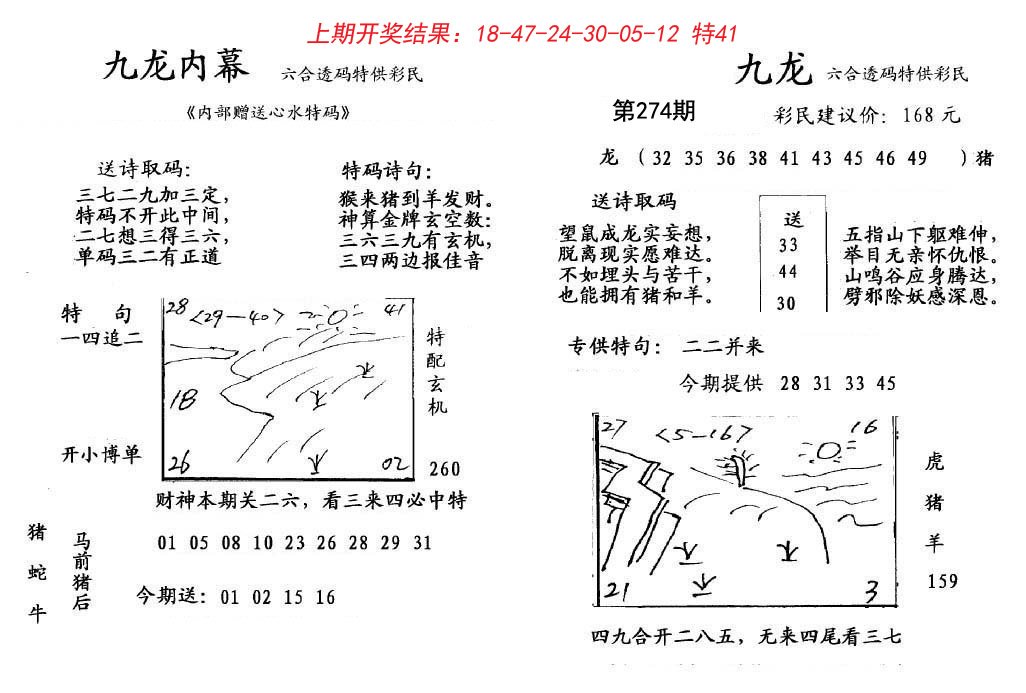 上期开奖结果：18-47-24-30-05-12 特41
九龙内幕 六合透码特供彩民
《内部赠送心水特码》
送诗取码：
三七二九加三定，
特码不开此中间，
二七想三得三六，
单码三二有正道
特码诗句：
猴来猪到羊发财。
神算金牌玄空数：
三六三九有玄机，
三四两边报佳音
特 句
一四追二
开小博单
28 <29-40> 41
18
26 02
特配玄机
260
财神本期关二六，看三来四必中特
猪蛇牛
马前猪后
01 05 08 10 23 26 28 29 31
今期送：01 02 15 16
九龙 六合透码特供彩民
第274期 彩民建议价：168元
龙 （32 35 36 38 41 43 45 46 49 ）猪
送诗取码
望鼠成龙实妄想，
脱离现实愿难达。
不如埋头与苦干，
也能拥有猪和羊。
送
33
44
30
五指山下躯难伸，
举目无亲怀仇恨。
山鸣谷应身腾达，
劈邪除妖感深恩。
专供特句： 二二并来
今期提供 28 31 33 45
27 <5-16> 16
21 3
虎
猪
羊
159
四九合开二八五，无来四尾看三七